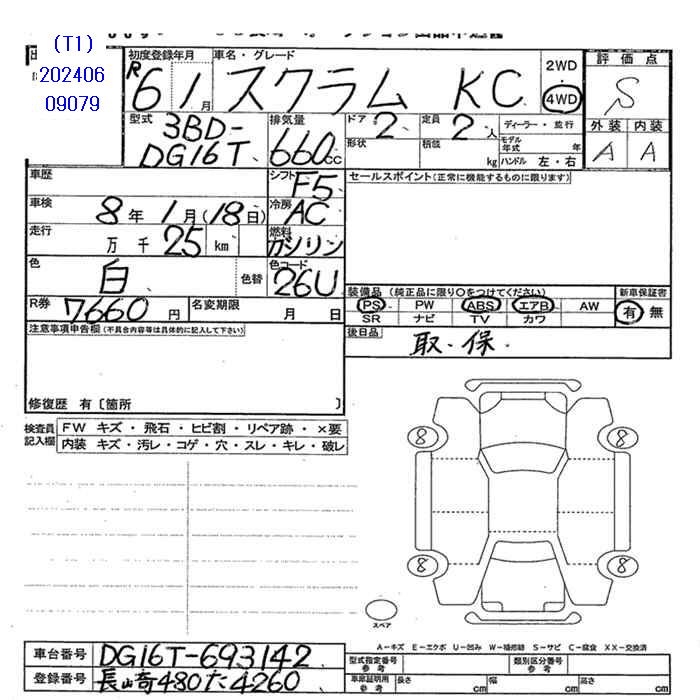 (T1)
202406
09079
初度登録年月
車名・グレード
R6 1月
スクラム KC
2WD
・
4WD
評価点
S
外装 内装
A A
型式
3BD-
DG16T
排気量
660cc
ドア 2
定員 2人
ディーラー・並行
形状
積載 kg
モデル年式 年
ハンドル 左・右
車歴
シフト F5
セールスポイント(正常に機能するものに限ります)
車検 8年 1月(18日)
冷房 AC
走行 万 千 25 km
燃料 ガソリン
色 白 色替
色コード 26U
装備品 (純正品に限り○をつけてください)
新車保証書
R券 7660円
名変期限 月 日
PS PW ABS エアB AW
有 無
SR ナビ TV カワ
注意事項申告欄(不具合内容等は具体的に記入して下さい)
後日品
取.保
修復歴 有〔箇所
検査員記入欄
FW キズ・飛石・ヒビ割・リペア跡・×要
内装 キズ・汚レ・コゲ・穴・スレ・キレ・破レ
8 8
8 8
スペア
A-キズ E-エクボ U-凹み W-補修跡 S-サビ C-腐食 XX-交換済
車台番号 DG16T-693142
型式指定番号 参考
類別区分番号 参考
登録番号 長崎480た4260
車庫証明用 参考
長さ cm
幅 cm
高さ cm